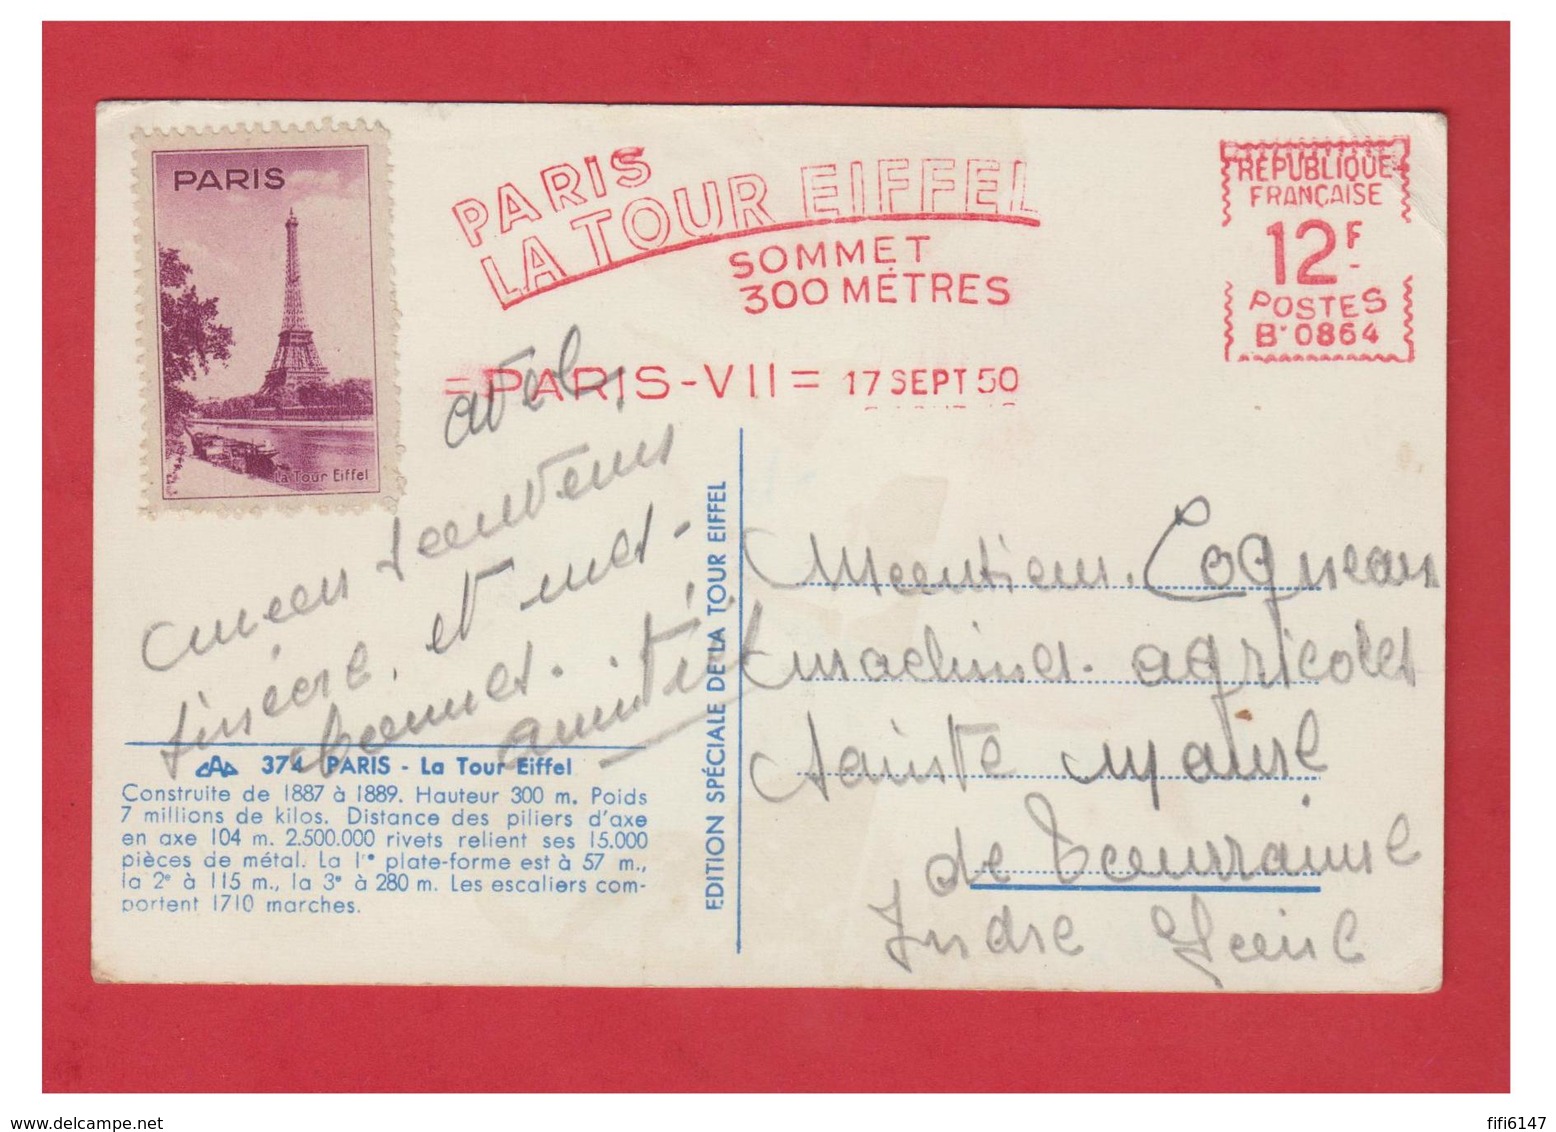 PARIS
La Tour Eiffel
PARIS
LA TOUR EIFFEL
SOMMET
300 MÉTRES
= PARIS - VII = 17 SEPT 50
RÉPUBLIQUE
FRANÇAISE
12F
POSTES
B. 0864
avec
mon souvenir
sincère, et mes
bonnes
amitiés
374 PARIS - La Tour Eiffel
Construite de 1887 à 1889. Hauteur 300 m. Poids
7 millions de kilos. Distance des piliers d'axe
en axe 104 m. 2.500.000 rivets relient ses 15.000
pièces de métal. La 1re plate-forme est à 57 m.,
la 2e à 115 m., la 3e à 280 m. Les escaliers com-
portent 1710 marches.
EDITION SPÉCIALE DE LA TOUR EIFFEL
Monsieur Coqneau
machines agricoles
Sainte Maure
de Touraine
Indre Loire
delcampe.net
fifi6147